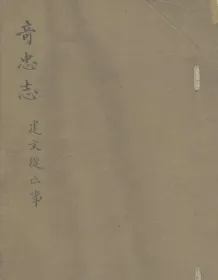 奇忠志
建文從亡事